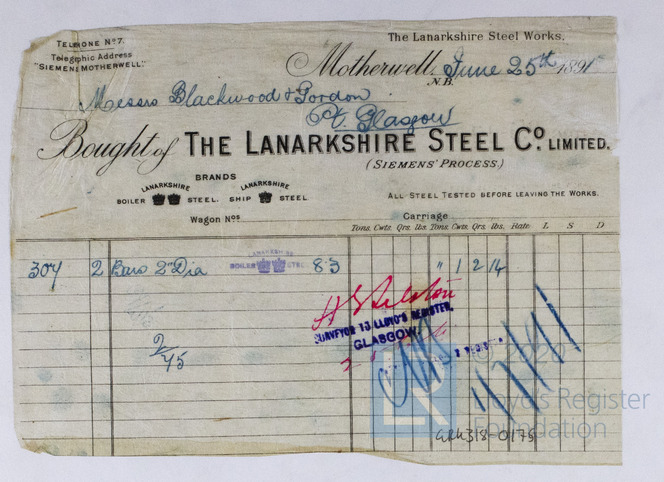 TELEPHONE No 7.
Telegraphic Address
"SIEMENS MOTHERWELL."
The Lanarkshire Steel Works.
Motherwell, June 25th 1891
N.B.
Messrs Blackwood & Gordon
Pt. Glasgow
Bought of THE LANARKSHIRE STEEL Co. LIMITED.
(SIEMENS' PROCESS.)
BRANDS
LANARKSHIRE BOILER STEEL. LANARKSHIRE SHIP STEEL.
ALL STEEL TESTED BEFORE LEAVING THE WORKS.
Wagon Nos
Carriage
Tons. Cwts. Qrs. lbs. Tons. Cwts. Qrs. lbs. Rate L S D
307 2 Bars 2" Dia LANARKSHIRE BOILER STEEL 83 " 1 2 14
SURVEYOR TO LLOYD'S REGISTER,
GLASGOW.
2/75
1/7/91
GRK318-0175
Lloyd's Register
Foundation